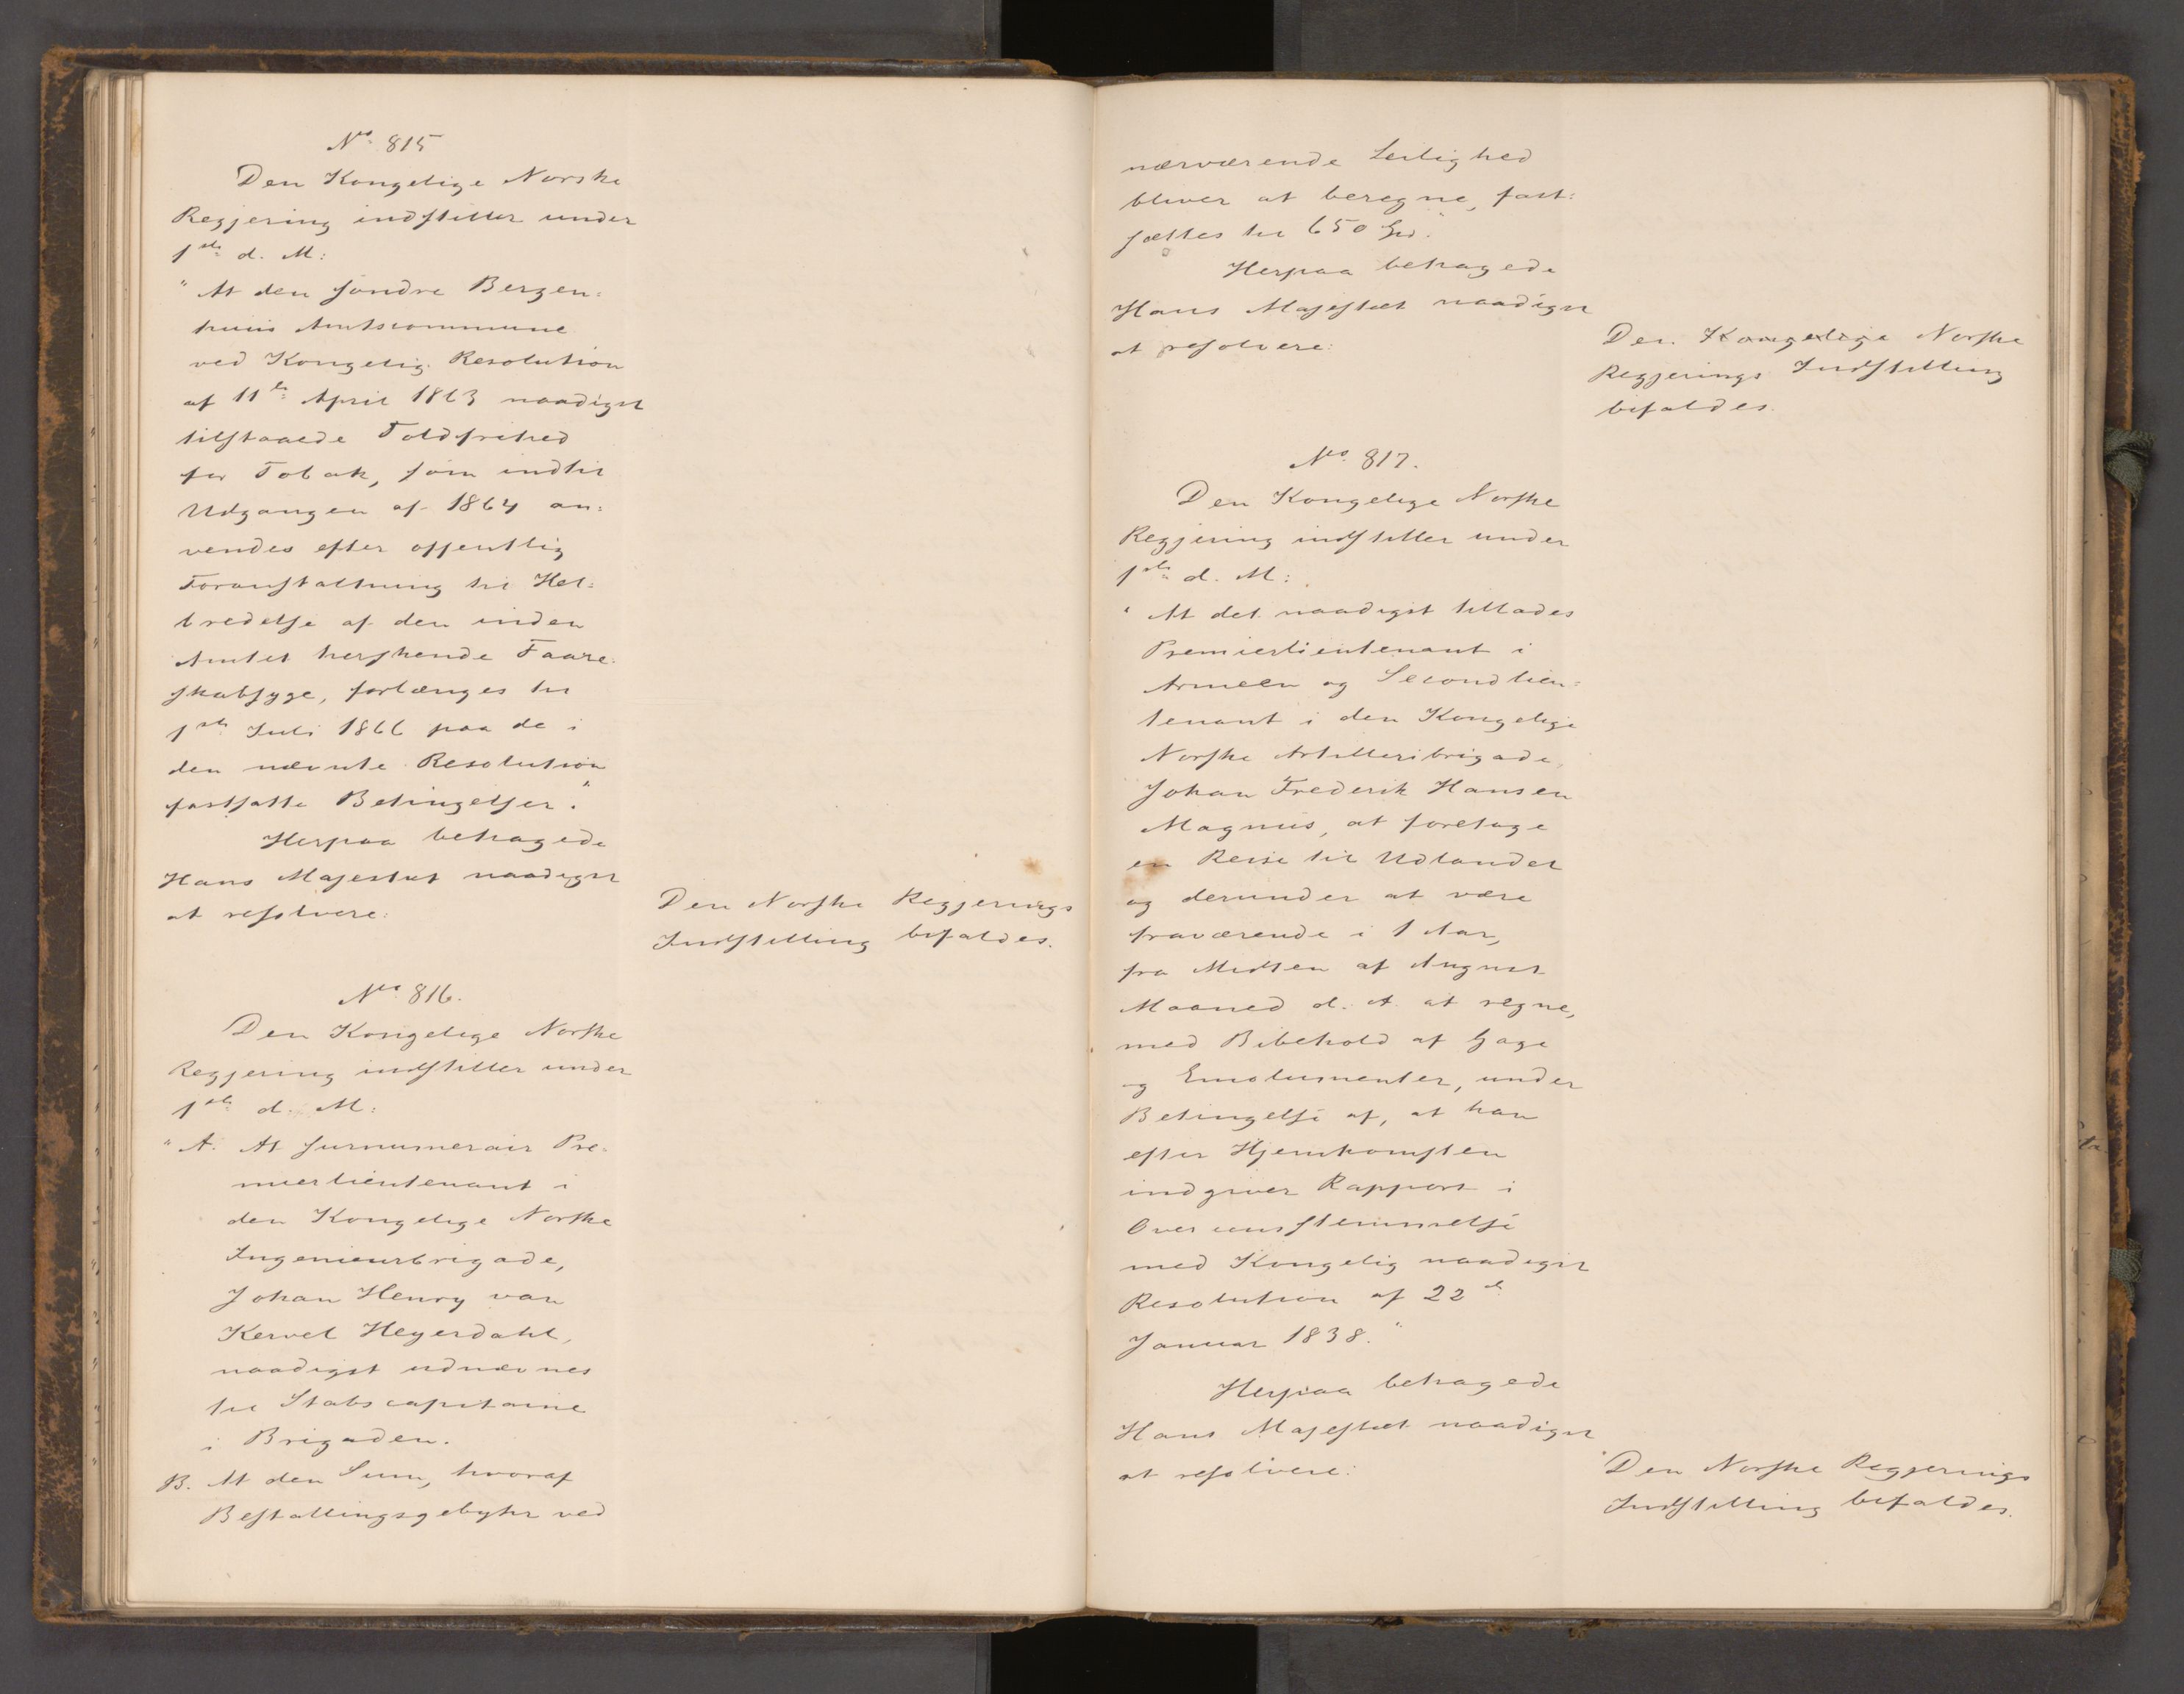 No 815
Den Kongelige Norske
Regjering indstiller under
1ste d. M:
"At den søndre Bergen:
huus Amtscommune
ved Kongelig Resolution
af 11te April 1863 naadigst
tilstaaede Toldfrihed
for Tobak, som indtil
Udgangen af 1864 an:
vendes efter offentlig
Foranstaltning til Hel:
bredelse af den inden
Amtet herskende Faare:
skabsyge, forlænges til
1ste Juli 1866 paa de i
den nævnte Resolution
fastsatte Betingelser."
Herpaa behagede
Hans Majestæt naadigst
at resolvere:
Den Norske Regjerings
Indstilling bifaldes.
No 816.
Den Kongelige Norske
Regjering indstiller under
1ste d. M:
"A. At surnumerair Pre:
mierlieutenant i
den Kongelige Norske
Ingenieurbrigade,
Johan Henry van
Kervel Heyerdahl,
naadigst udnævnes
til Stabscapitaine
i Brigaden.
B. At den Sum, hvoraf
Bestallingsgebyhr ved
nærværende Leilighed
bliver at beregne, fast:
sættes til 650 Spd."
Herpaa behagede
Hans Majestæt naadigst
at resolvere:
Den Kongelige Norske
Regjerings Indstilling
bifaldes.
No 817.
Den Kongelige Norske
Regjering indstiller under
1ste d. M:
"At det naadigst tillades
Premierlieutenant i
Armeen og Secondlieu:
tenant i den Kongelige
Norske Artilleribrigade,
Johan Frederik Hansen
Magnus, at foretage
en Reise til Udlandet
og derunder at være
fraværende i 1 Aar,
fra Midten af August
Maaned d. A. at regne,
med Bibehold af Gage
og Emolumenter, under
Betingelse af, at han
efter Hjemkomsten
indgiver Rapport i
Overeensstemmelse
med Kongelig naadigst
Resolution af 22de
Januar 1838."
Herpaa behagede
Hans Majestæt naadigst
at resolvere:
Den Norske Regjerings
Indstilling bifaldes.